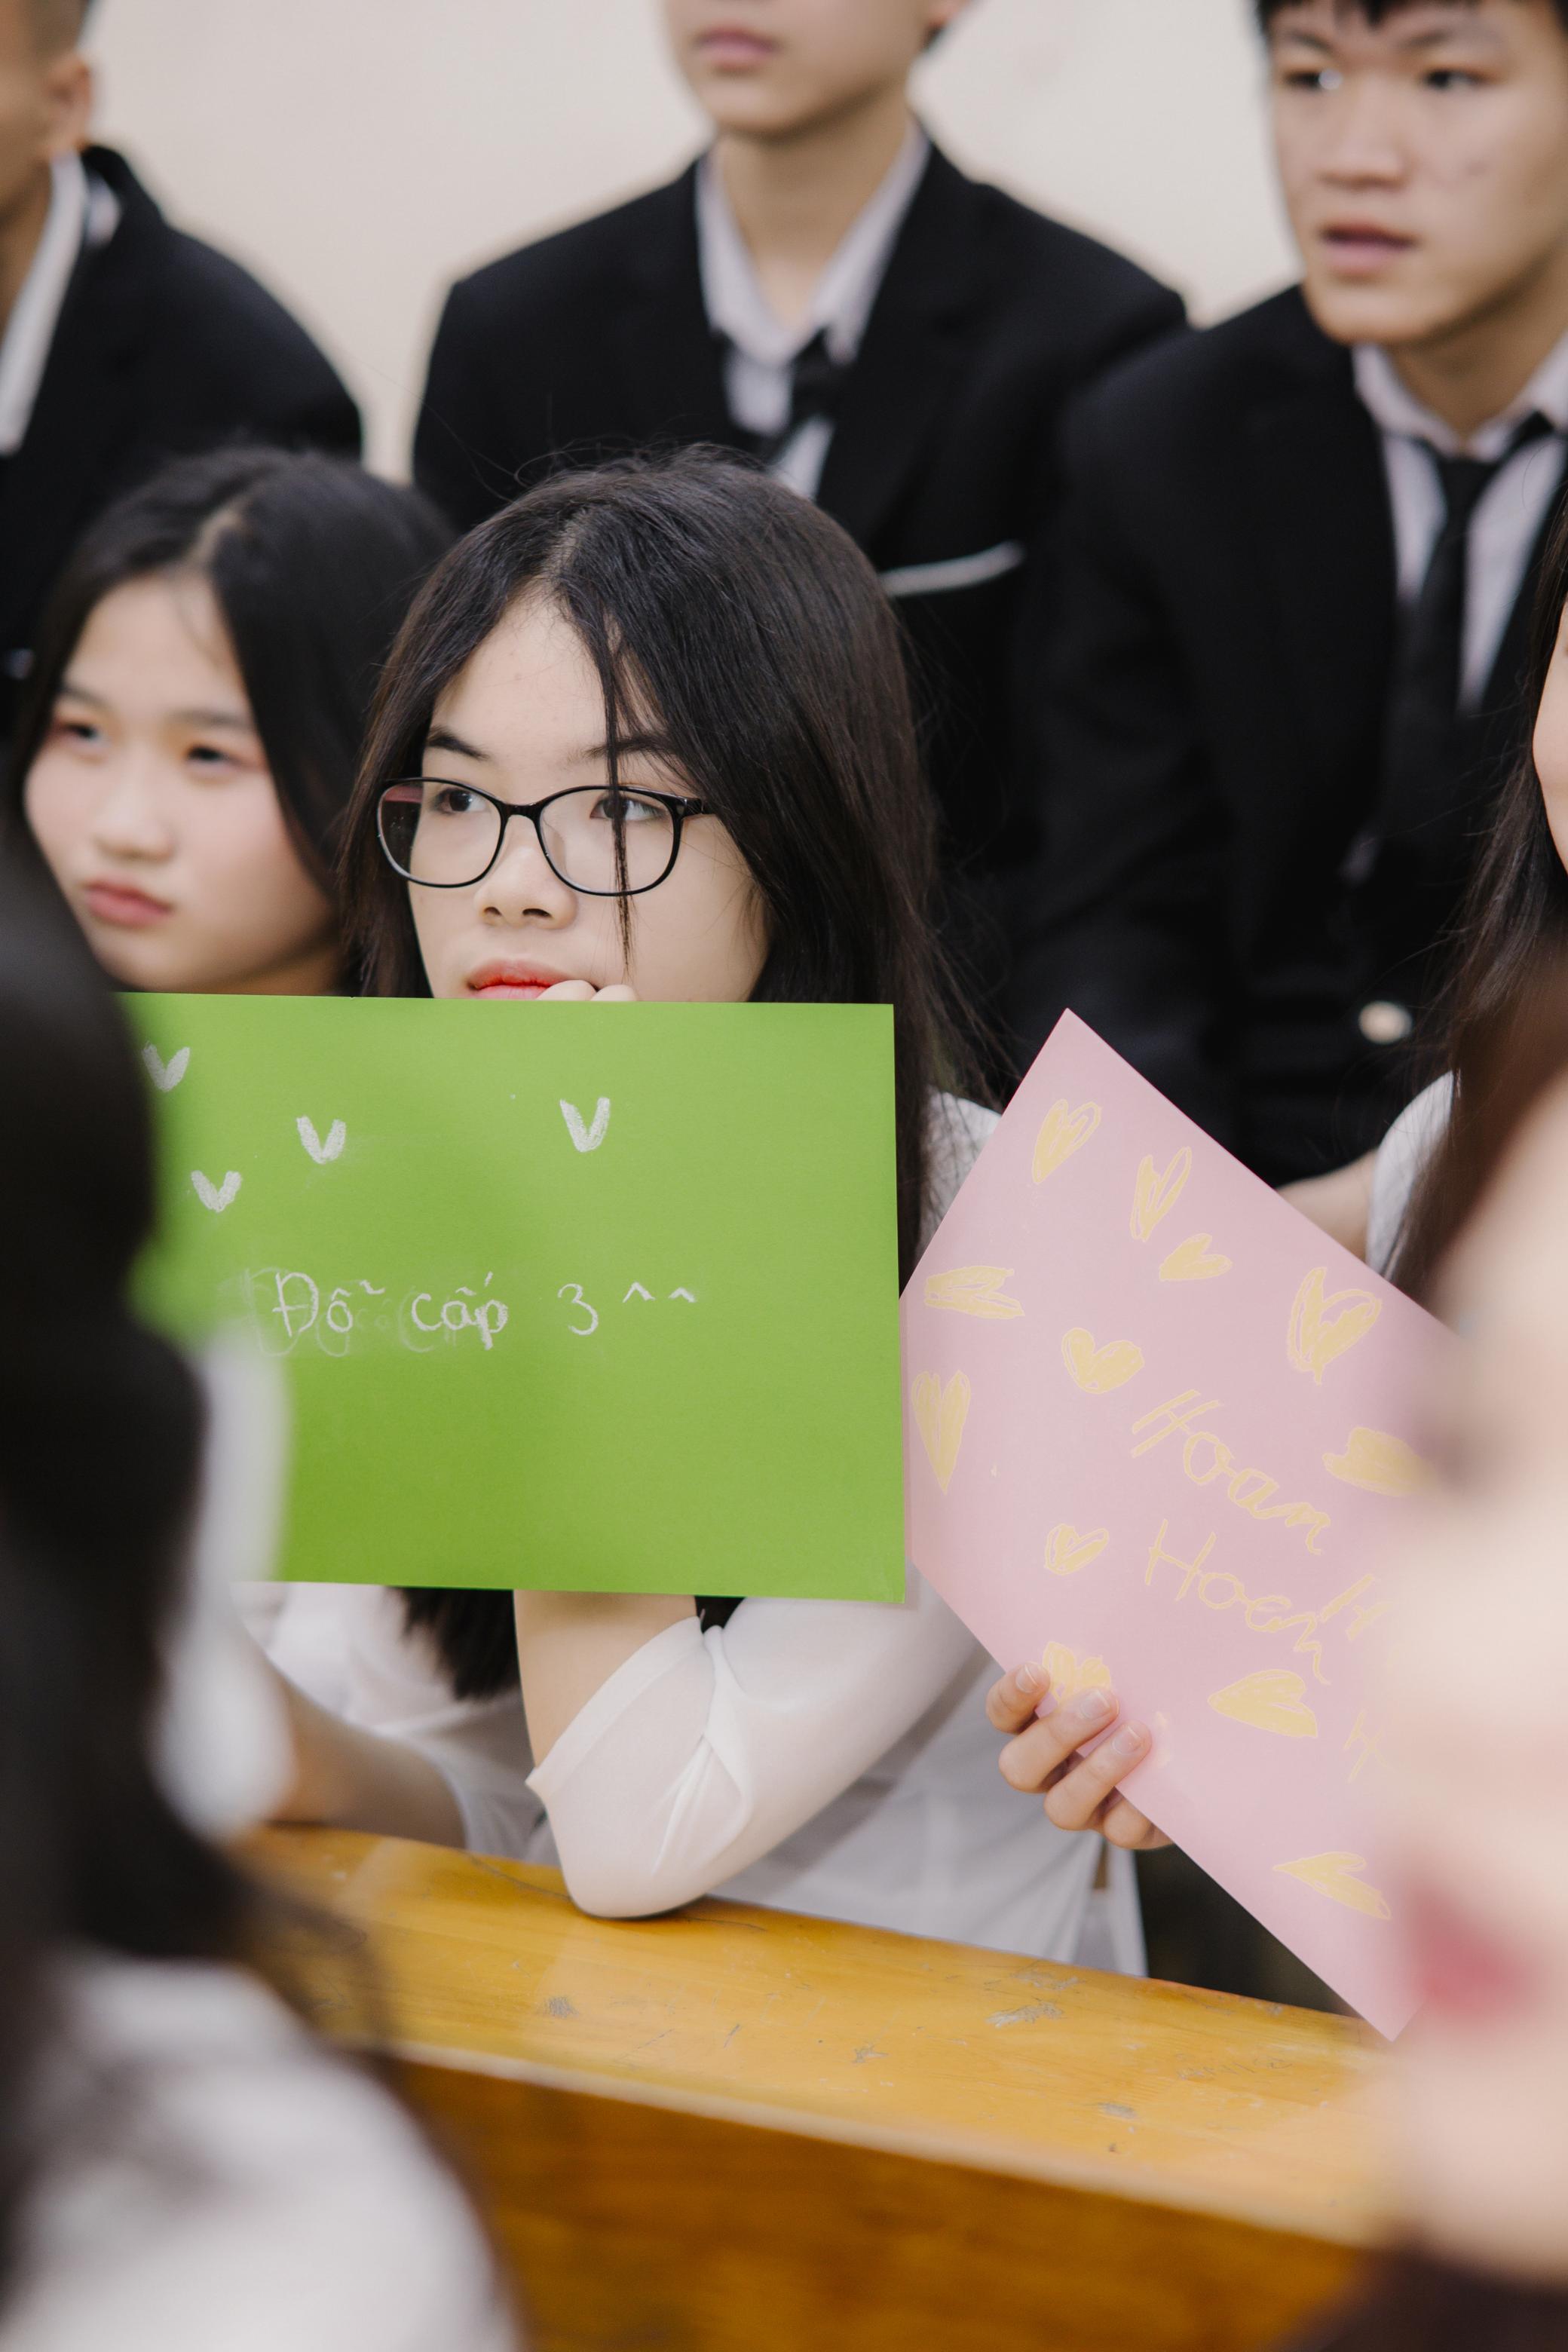 Đỗ cấp 3 ^^
Hoan
Hoch